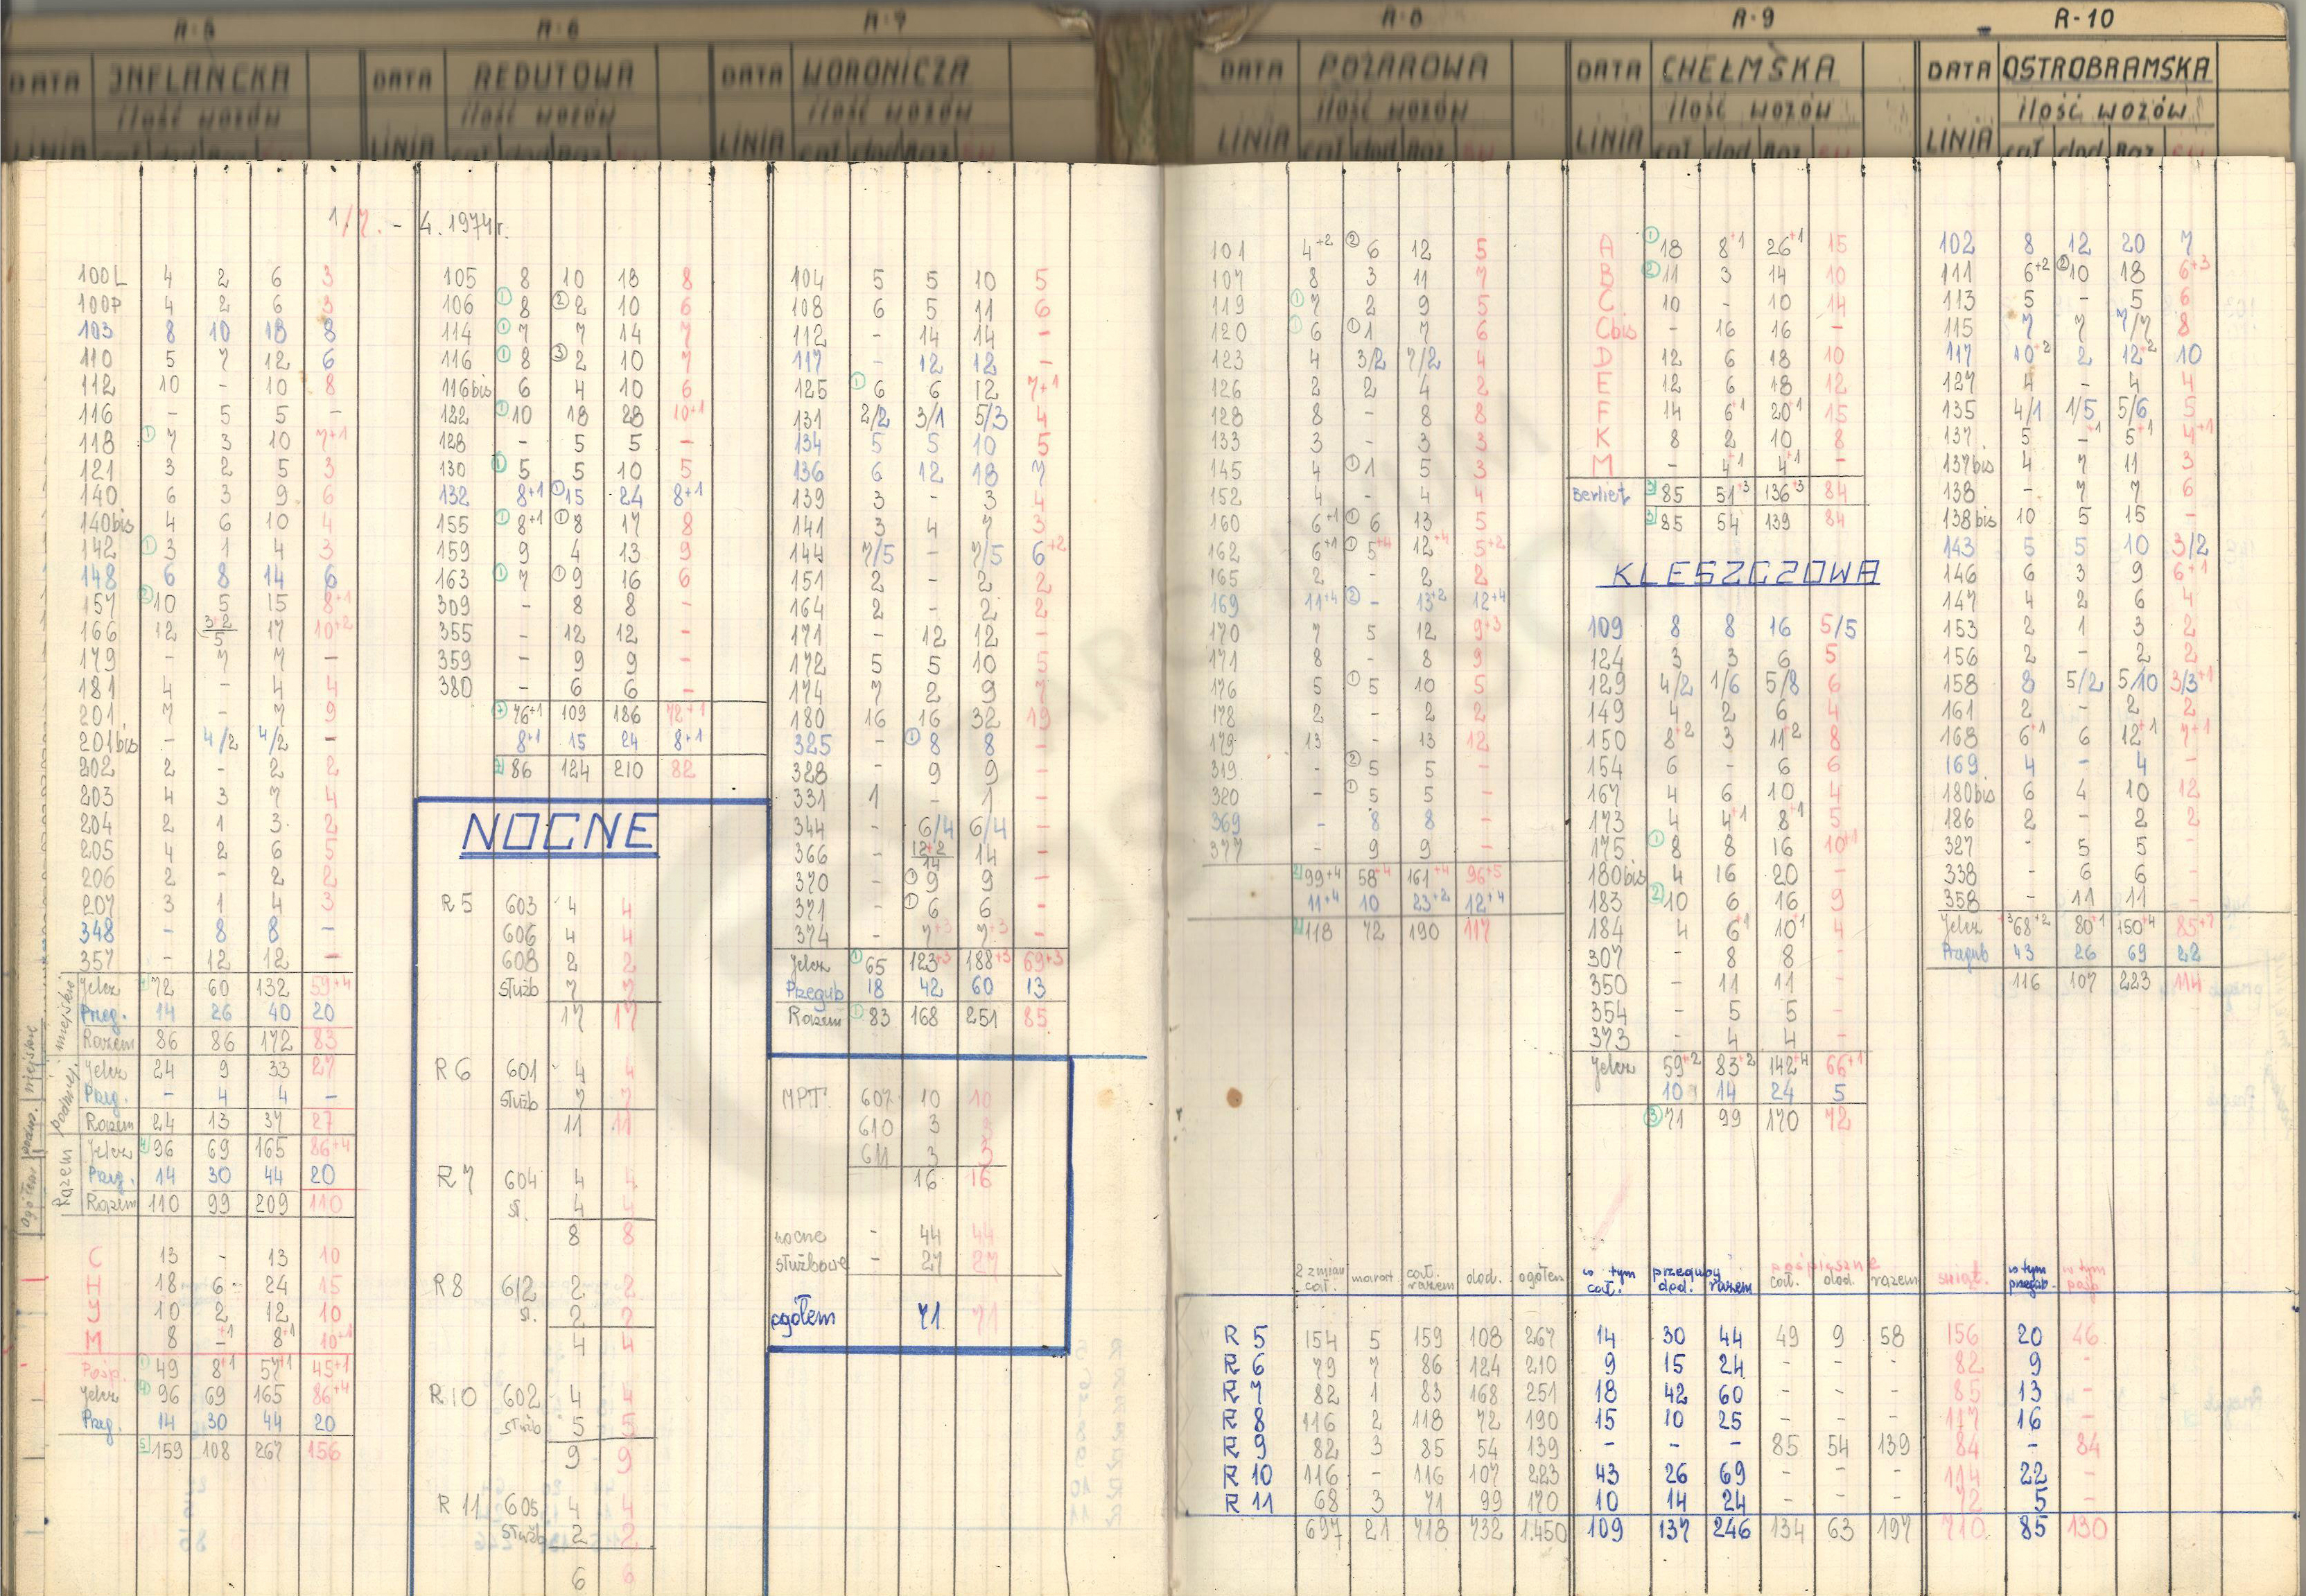 R-5 R-6 R-7 R-8 R-9 R-10
DATA INFLANCKA DATA REDUTOWA DATA WORONICZA DATA POŻAROWA DATA CHEŁMSKA DATA OSTROBRAMSKA
ilość wozów ilość wozów ilość wozów ilość wozów ilość wozów ilość wozów
LINIA cał dod Raz LINIA cał dod Raz LINIA cał dod Raz LINIA cał dod Raz LINIA cał dod Raz LINIA cał dod Raz
1/7. - 4.1974r.
100L 4 2 6 3
100P 4 2 6 3
103 8 10 18 8
110 5 7 12 6
112 10 - 10 8
116 - 5 5 -
118 ① 7 3 10 7+1
121 3 2 5 3
140 6 3 9 6
140bis 4 6 10 4
142 ① 3 1 4 3
148 6 8 14 6
157 ② 10 5 15 8+1
166 12 3+2/5 17 10+2
179 - 7 7 -
181 4 - 4 4
201 7 - 7 9
201bis - 4/2 4/2 -
202 2 - 2 2
203 4 3 7 4
204 2 1 3 2
205 4 2 6 5
206 2 - 2 2
207 3 1 4 3
348 - 8 8 -
357 - 12 12 -
Jelcz 72 60 132 59+4
Przeg. 14 26 40 20
Razem 86 86 172 83
Jelcz 24 9 33 27
Przg. - 4 4 -
Razem 24 13 37 27
Jelcz 96 69 165 86+4
Przg. 14 30 44 20
Razem 110 99 209 110
C 13 - 13 10
H 18 6 24 15
J 10 2 12 10
M 8 -+1 8+1 10+1
Posp. ① 49 8+1 57+1 45+1
Jelcz ④ 96 69 165 86+4
Przg. 14 30 44 20
5 159 108 267 156
105 8 10 18 8
106 ① 8 ② 2 10 6
114 ① 7 7 14 7
116 ① 8 ③ 2 10 7
116bis 6 4 10 6
122 ① 10 18 28 10+1
128 - 5 5 -
130 ① 5 5 10 5
132 8+1 ① 15 24 8+1
155 ① 8+1 ① 8 17 8
159 9 4 13 9
163 ① 7 ① 9 16 6
309 - 8 8 -
355 - 12 12 -
359 - 9 9 -
380 - 6 6 -
⑦ 76+1 109 186 72+1
8+1 15 24 8+1
7 86 124 210 82
NOCNE
R5 603 4 4
606 4 4
608 2 2
służb 7
17 17
R6 601 4 4
służb 7 7
11 11
R7 604 4 4
sł. 4
8 8
R8 612 2 2
sł. 2 2
4 4
R10 602 4 4
służb 5 5
9 9
R11 605 4 4
służb 2 2
6 6
104 5 5 10 5
108 6 5 11 6
112 - 14 14 -
117 - 12 12 -
125 ① 6 6 12 7+1
131 2/2 3/1 5/3 4
134 5 5 10 5
136 6 12 18 7
139 3 - 3 4
141 3 4 7 3
144 7/5 - 7/5 6+2
151 2 - 2 2
164 2 - 2 2
171 - 12 12 -
172 5 5 10 5
174 7 2 9 7
180 16 16 32 19
325 - ① 8 8 -
328 - 9 9 -
331 1 - 1 -
344 - 6/4 6/4 -
366 - 12+2/14 14 -
370 - ① 9 9 -
371 - ① 6 6 -
374 - 7+3 7+3 -
Jelcz ① 65 123+3 188+3 69+3
Przegub 18 42 60 13
Razem ① 83 168 251 85
MPT 607 10 10
610 3
611 3 3
16 16
nocne - 44 44
służbowe - 27 27
ogółem 71 71
101 4+2 ② 6 12 5
107 8 3 11 7
119 ① 7 2 9 5
120 ① 6 ① 1 7 6
123 4 3/2 7/2 4
126 2 2 4 2
128 8 - 8 8
133 3 - 3 3
145 4 ① 1 5 3
152 4 - 4 4
160 6+1 ① 6 13 5
162 6+1 ① 5+4 12+4 5+2
165 2 - 2 2
169 11+4 ② - 13+2 12+4
170 7 5 12 9+3
171 8 - 8 9
176 5 ① 5 10 5
178 2 - 2 2
179 13 - 13 12
319 - ② 5 5 -
320 - ① 5 5 -
369 - 8 8 -
377 - 9 9 -
2 99+4 58+4 161+4 96+5
11+4 10 23+2 12+4
2 118 72 190 117
A ① 18 8+1 26+1 15
B ② 11 3 14 10
C 10 - 10 14
Cbis - 16 16 -
D 12 6 18 10
E 12 6 18 12
F 14 6+1 20+1 15
K 8 2 10 8
M - 4+1 4+1 -
Berliet 3 85 51+3 136+3 84
3 85 54 139 84
KLESZCZOWA
109 8 8 16 5/5
124 3 3 6 5
129 4/2 1/6 5/8 6
149 4 2 6 4
150 8+2 3 11+2 8
154 6 - 6 6
167 4 6 10 4
173 4 4+1 8+1 5
175 ① 8 8 16 10+1
180bis 4 16 20 -
183 ② 10 6 16 9
184 4 6+1 10+1 4
307 - 8 8 -
350 - 11 11 -
354 - 5 5 -
373 - 4 4 -
Jelcz 59+2 83+2 142+4 66+1
10 14 24 5
③ 71 99 170 72
102 8 12 20 7
111 6+2 ② 10 18 6+3
113 5 - 5 6
115 7 7 7/7 8
117 10+2 2 12+2 10
127 4 - 4 4
135 4/1 1/5 5/6 5
137 5 -+1 5+1 4+1
137bis 4 7 11 3
138 - 7 7 6
138bis 10 5 15 -
143 5 5 10 3/2
146 6 3 9 6+1
147 4 2 6 4
153 2 1 3 2
156 2 - 2 2
158 8 5/2 5/10 3/3+1
161 2 - 2 2
168 6+1 6 12+1 7+1
169 4 - 4 -
180bis 6 4 10 12
186 2 - 2 2
327 - 5 5 -
338 - 6 6 -
358 - 11 11 -
Jelcz 68+2 80+1 150+4 85+7
Przgub 43 26 69 22
116 107 223 114
2 zmian cał. marat. cał. razem dod. ogółem w tym cał. przeguby dod. razem pośpieszne cał. dod. razem świąt. w tym przegub. w tym posp
R 5 154 5 159 108 267 14 30 44 49 9 58 156 20 46
R 6 79 7 86 124 210 9 15 24 - - - 82 9 -
R 7 82 1 83 168 251 18 42 60 - - - 85 13 -
R 8 116 2 118 72 190 15 10 25 - - - 117 16 -
R 9 82 3 85 54 139 - - - 85 54 139 84 - 84
R 10 116 - 116 107 223 43 26 69 - - - 114 22 -
R 11 68 3 71 99 170 10 14 24 - - - 72 5 -
697 21 718 732 1.450 109 137 246 134 63 197 710 85 130